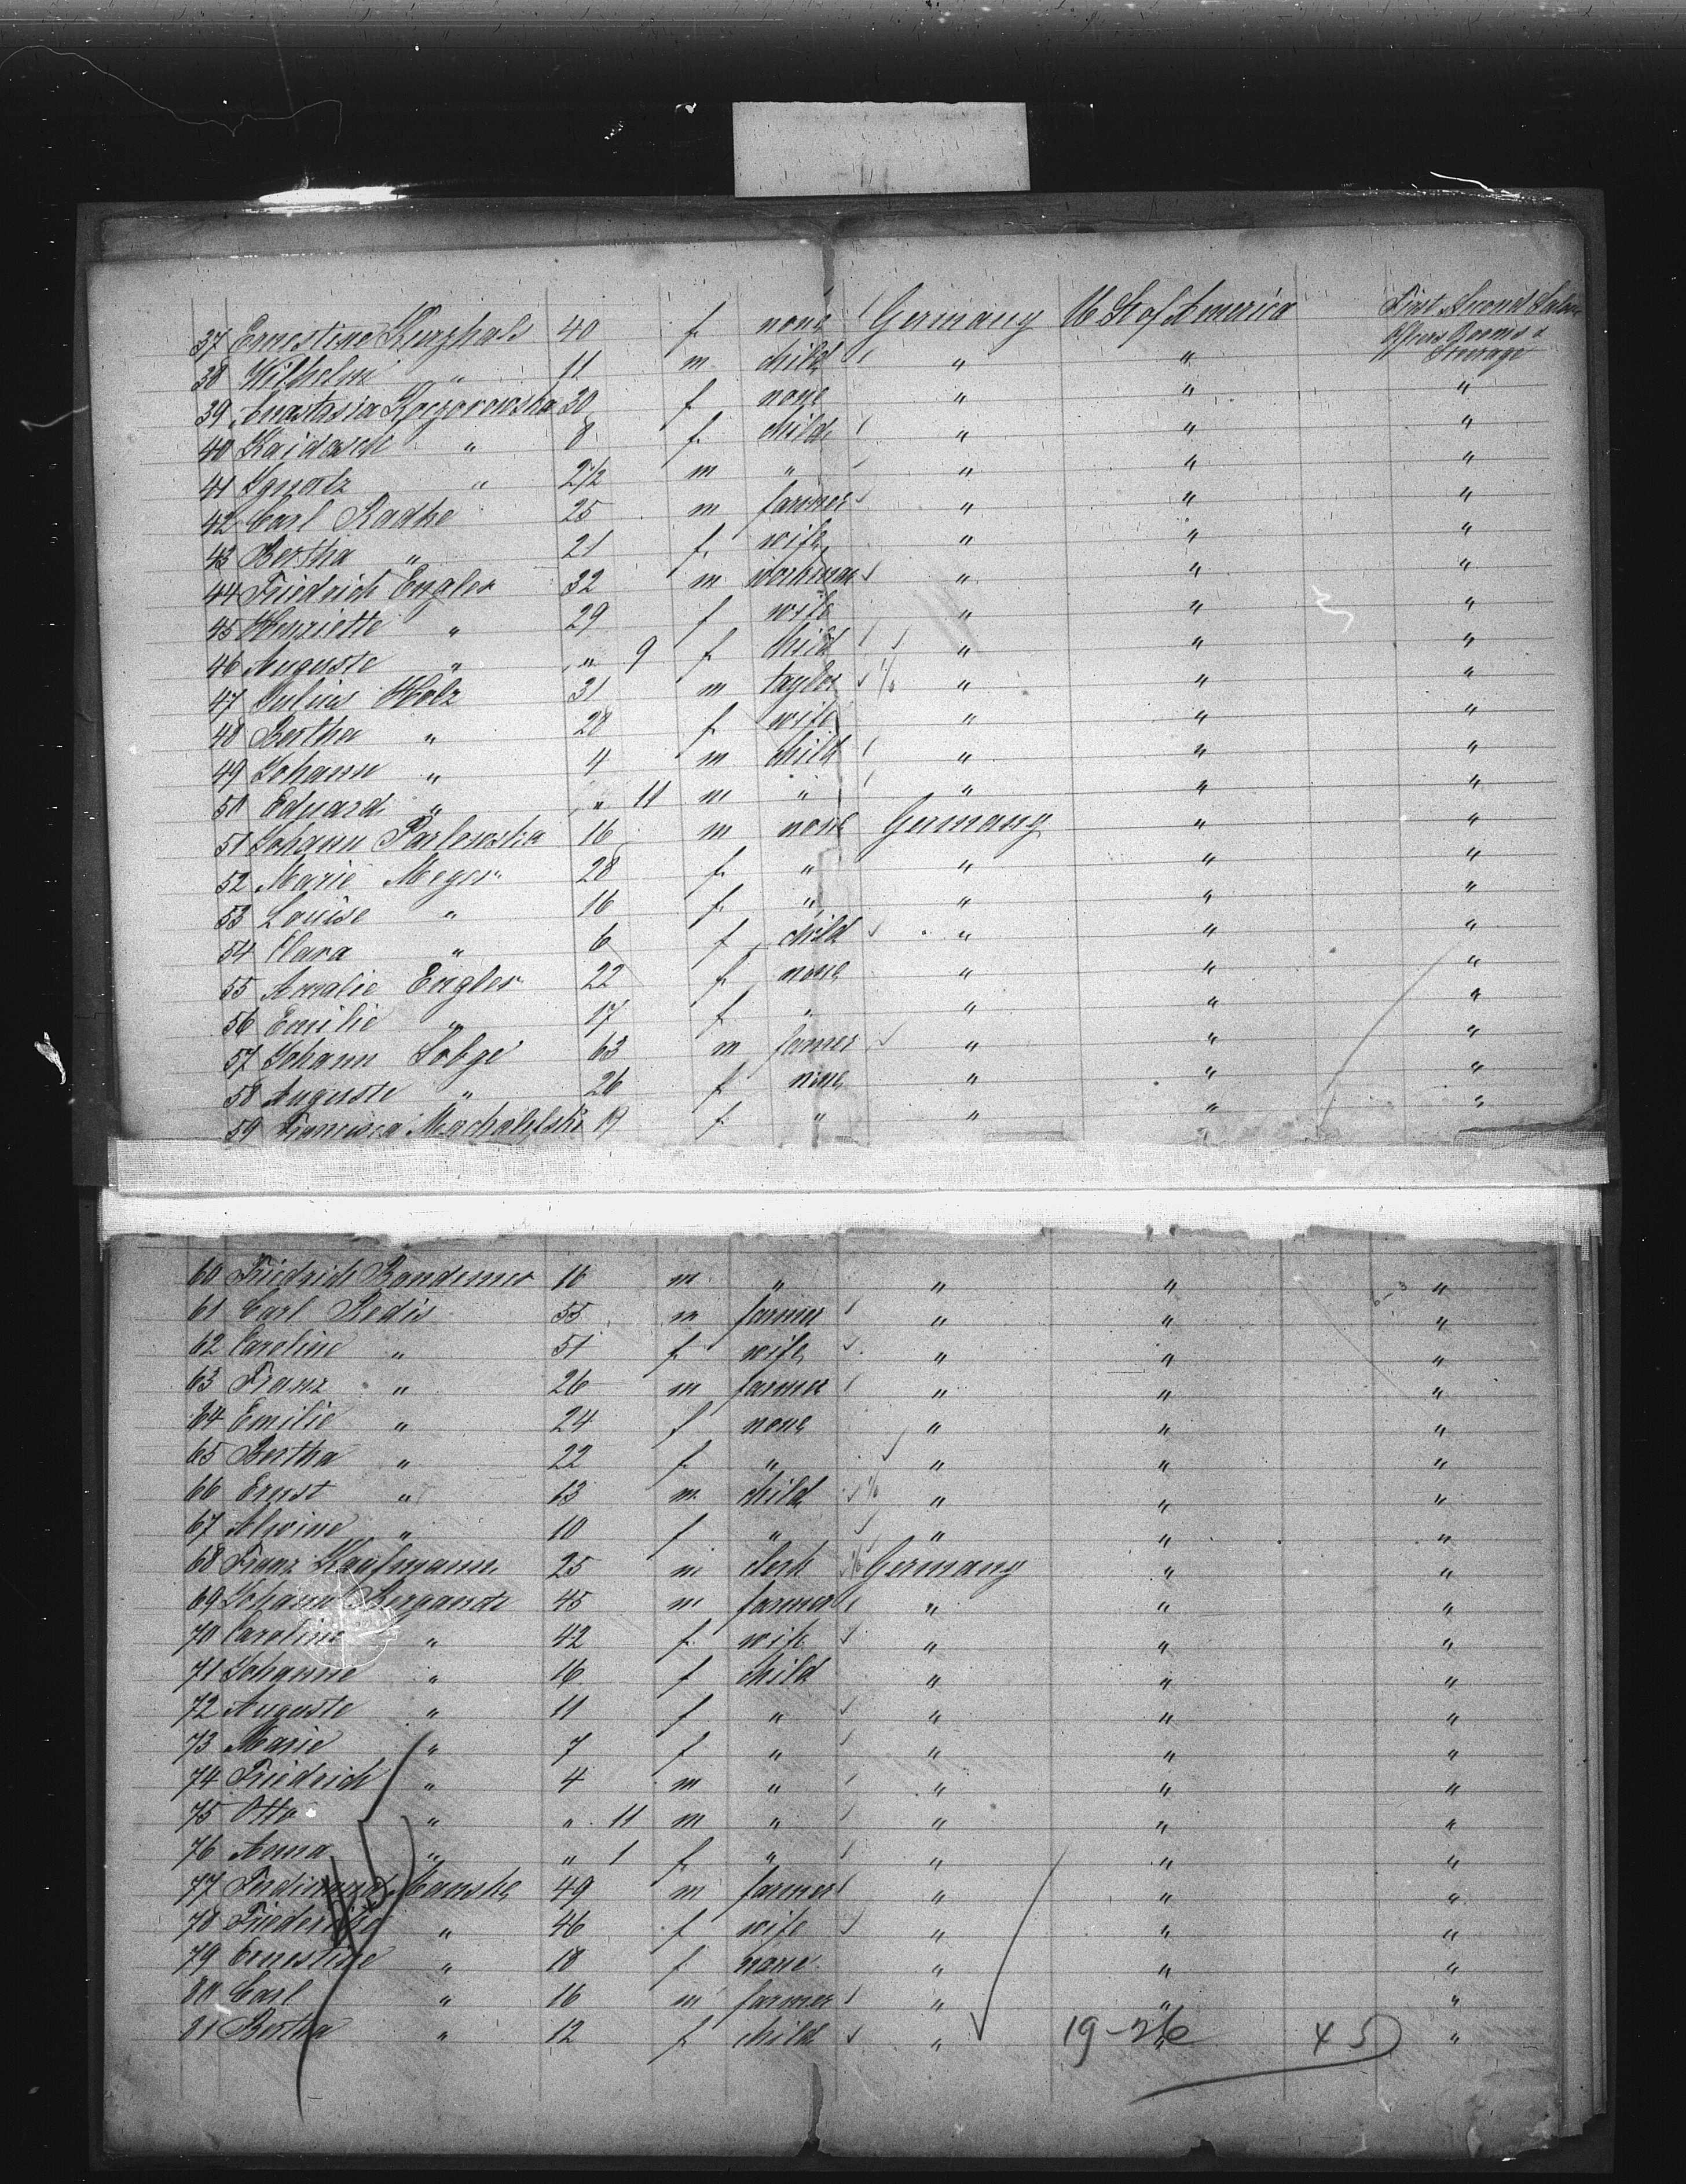 37 Ernestine Kurzhals 40 f none Germany U St of America First Second Saloon
38 Wilhelm " 11 m child " " Officers Rooms & Steerage
39 Anastasia Koczorowska 30 f none " " "
40 Kaidasch " 8 f child " " "
41 Ignatz " 2 1/2 m " " " "
42 Carl Radke 25 m farmer " " "
43 Bertha " 21 f wife " " "
44 Friedrich Engler 32 m workman " " "
45 Henriette " 29 f wife " " "
46 Auguste " " 9 f child " " "
47 Julius Holz 31 m taylor " " "
48 Bertha " 28 f wife " " "
49 Johann " 4 m child " " "
50 Eduard " " 11 m " " " "
51 Johann Parlowska 16 m none Germany " "
52 Marie Meyer 28 f " " " "
53 Louise " 16 f " " " "
54 Clara " 6 f child " " "
55 Amalie Engler 22 f none " " "
56 Emilie " 17 f " " " "
57 Johann Sobge 63 m farmer " " "
58 Auguste " 26 f none " " "
59 Francisca 19 f " " " "
60 Friedrich Bandemer 16 m " " " "
61 Carl Redis 55 m farmer " " "
62 Caroline " 51 f wife " " "
63 Franz " 26 m farmer " " "
64 Emilie " 24 f none " " "
65 Bertha " 22 f " " " "
66 Ernst " 13 m child " " "
67 Alwine " 10 f " " " "
68 Franz Kaufmann 25 m clerk Germany " "
69 Johann Bergande 45 m farmer " " "
70 Caroline " 42 f wife " " "
71 Johanne " 16 f child " " "
72 Auguste " 11 f " " " "
73 Marie " 7 f " " " "
74 Friedrich " 4 m " " " "
75 Otto " " 11 m " " " "
76 Anna " " 1 f " " " "
77 Ferdinand Manske 49 m farmer " " "
78 Friederike " 46 f wife " " "
79 Ernestine " 18 f none " " "
80 Carl " 16 m farmer " " "
81 Bertha " 12 f child " " "
19-26 45